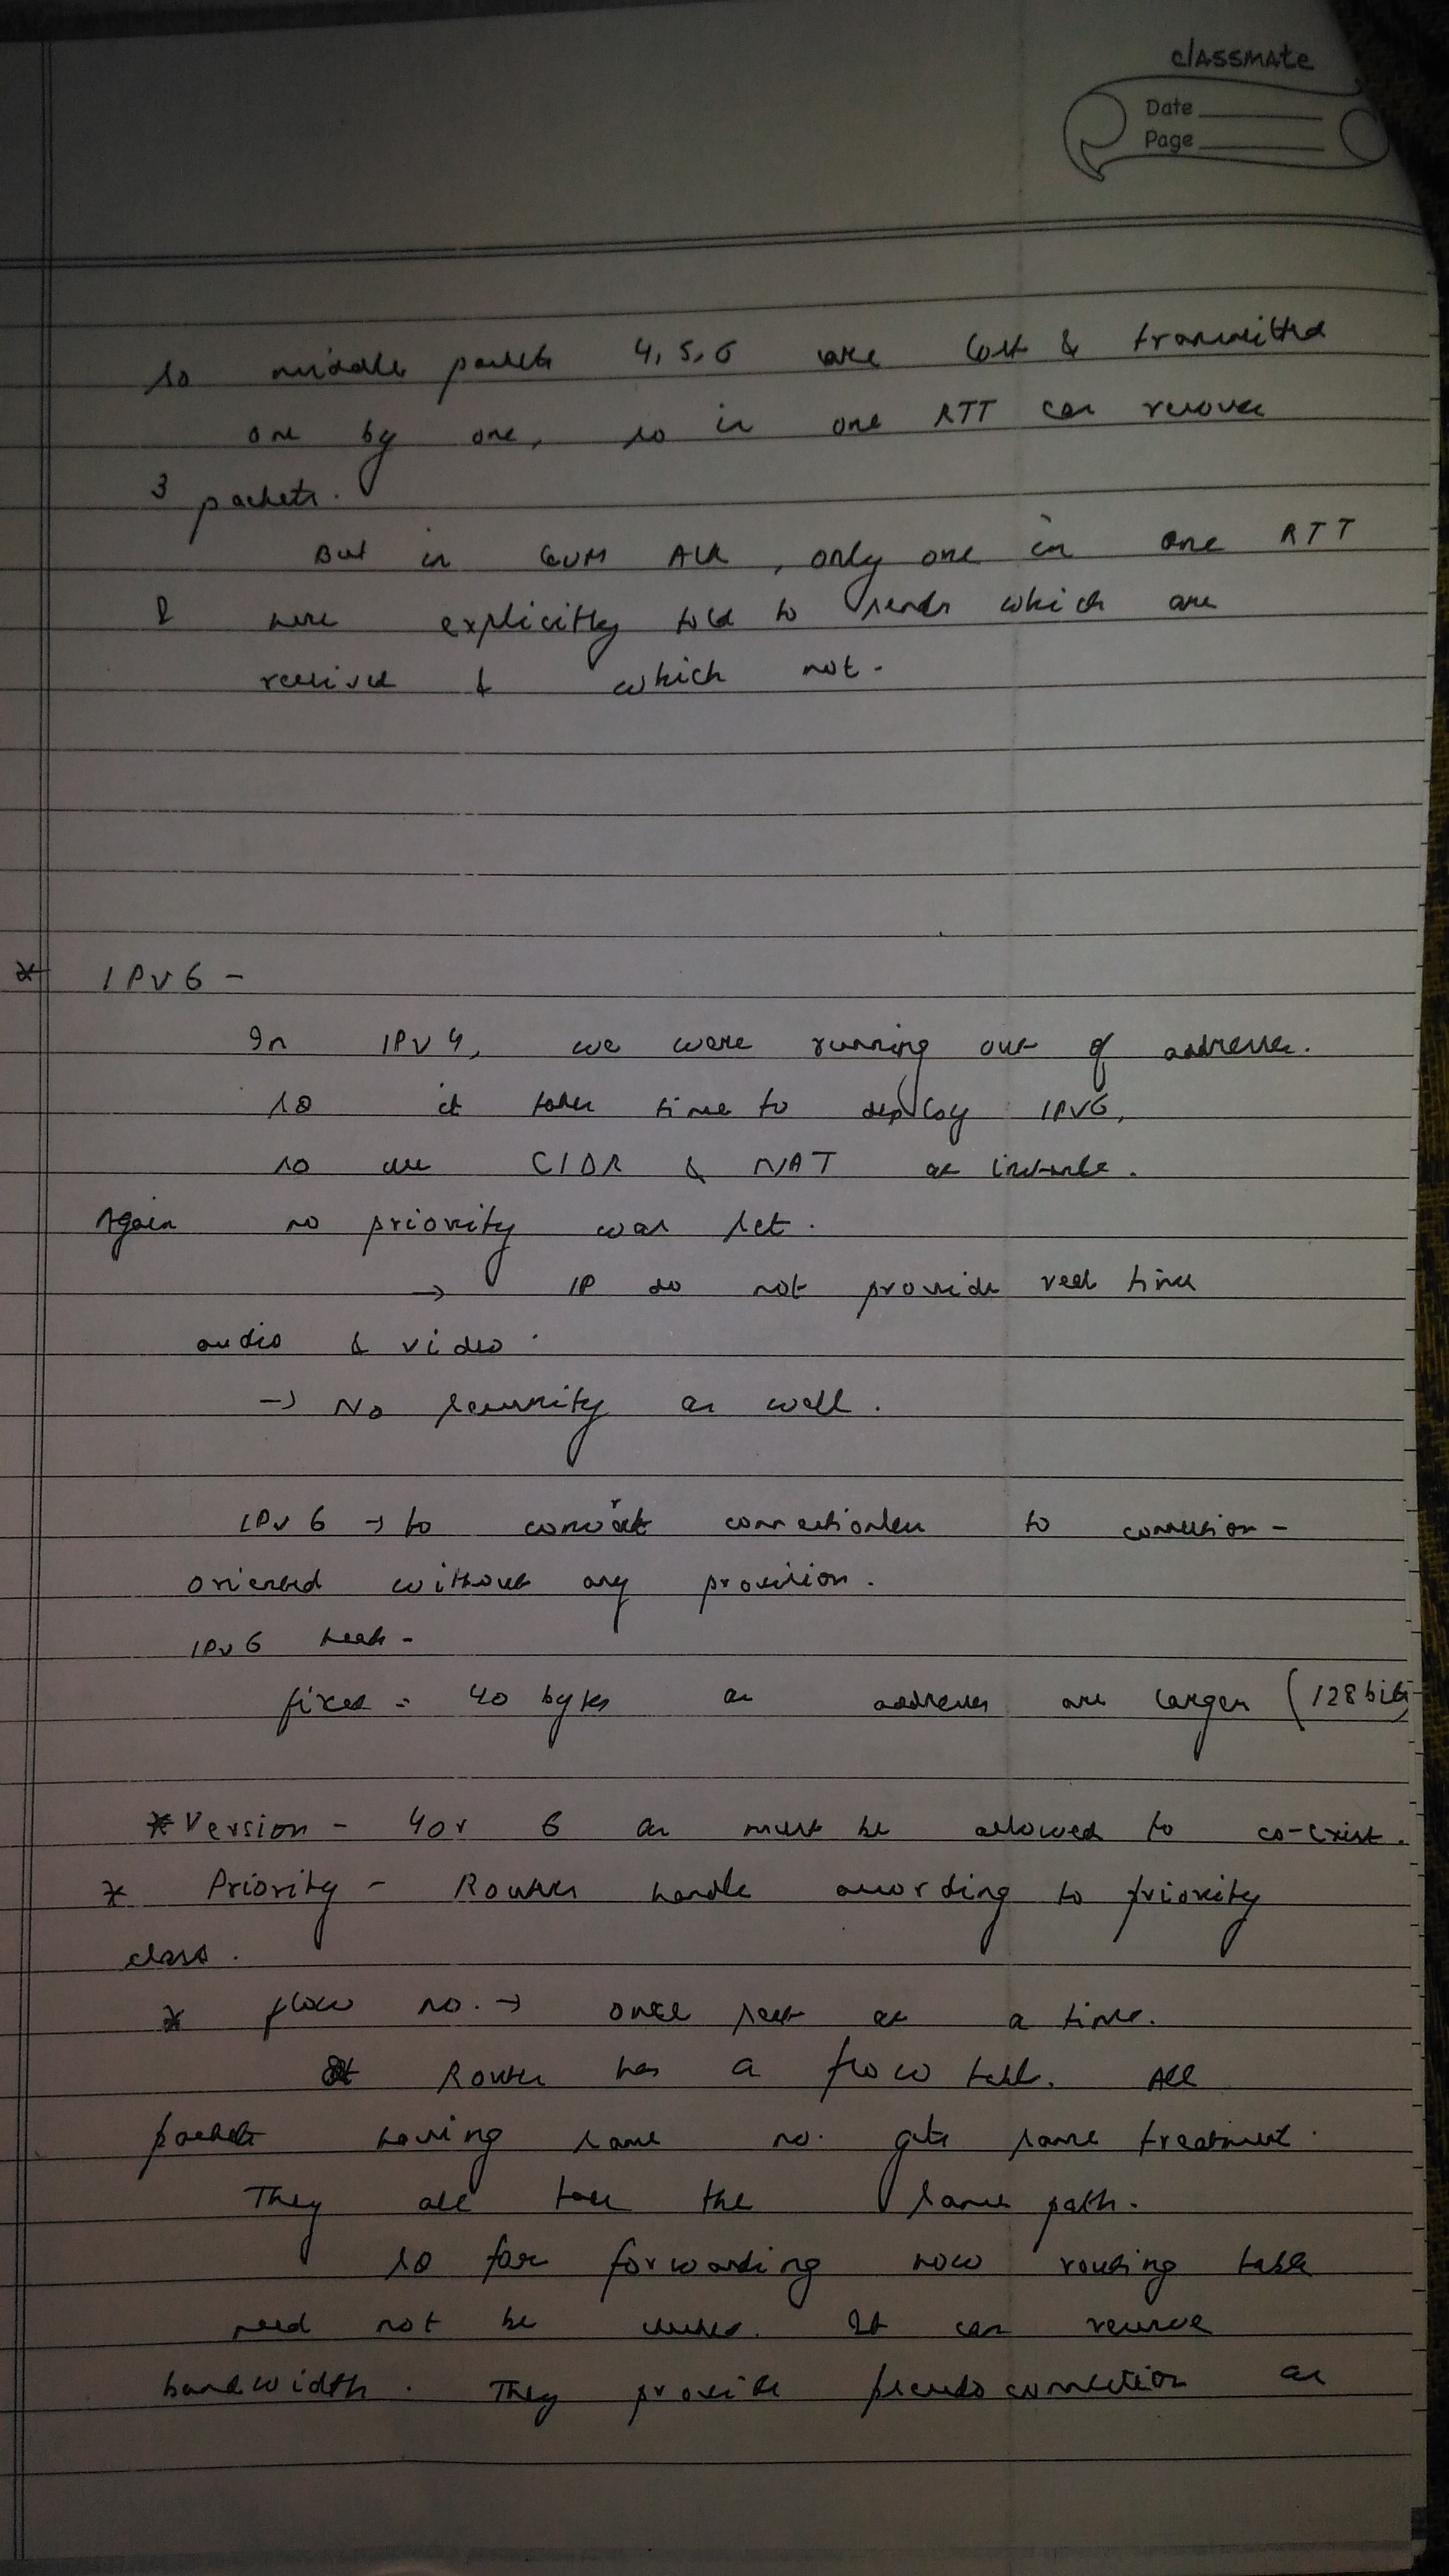 classmate
Date
Page
so middle packets 4, 5, 6 are lost & transmitted
one by one, so in one RTT can recover
3 packets.
But in CUM ACK, only one in one RTT
& here explicitly told to sender which are
received & which not.
* IPv6 -
In IPv4, we were running out of addresses.
so it takes time to deploy IPv6,
so use CIDR & NAT as
Again no priority was set.
→ IP do not provide real time
audio & video.
→ No security as well.
IPv6 → to convert connectionless to connection-
oriented without any provision.
IPv6 head -
fixed = 40 bytes as addresses are larger (128 bits)
* Version - 4 or 6 as must be allowed to co-exist.
* Priority - Router handle according to priority
class.
* flow no. → once sent at a time.
Router has a flow table. All
packets having same no. gets same treatment.
They all take the same path.
so for forwarding now routing table
need not be It can reserve
bandwidth. They provide pseudo connection as